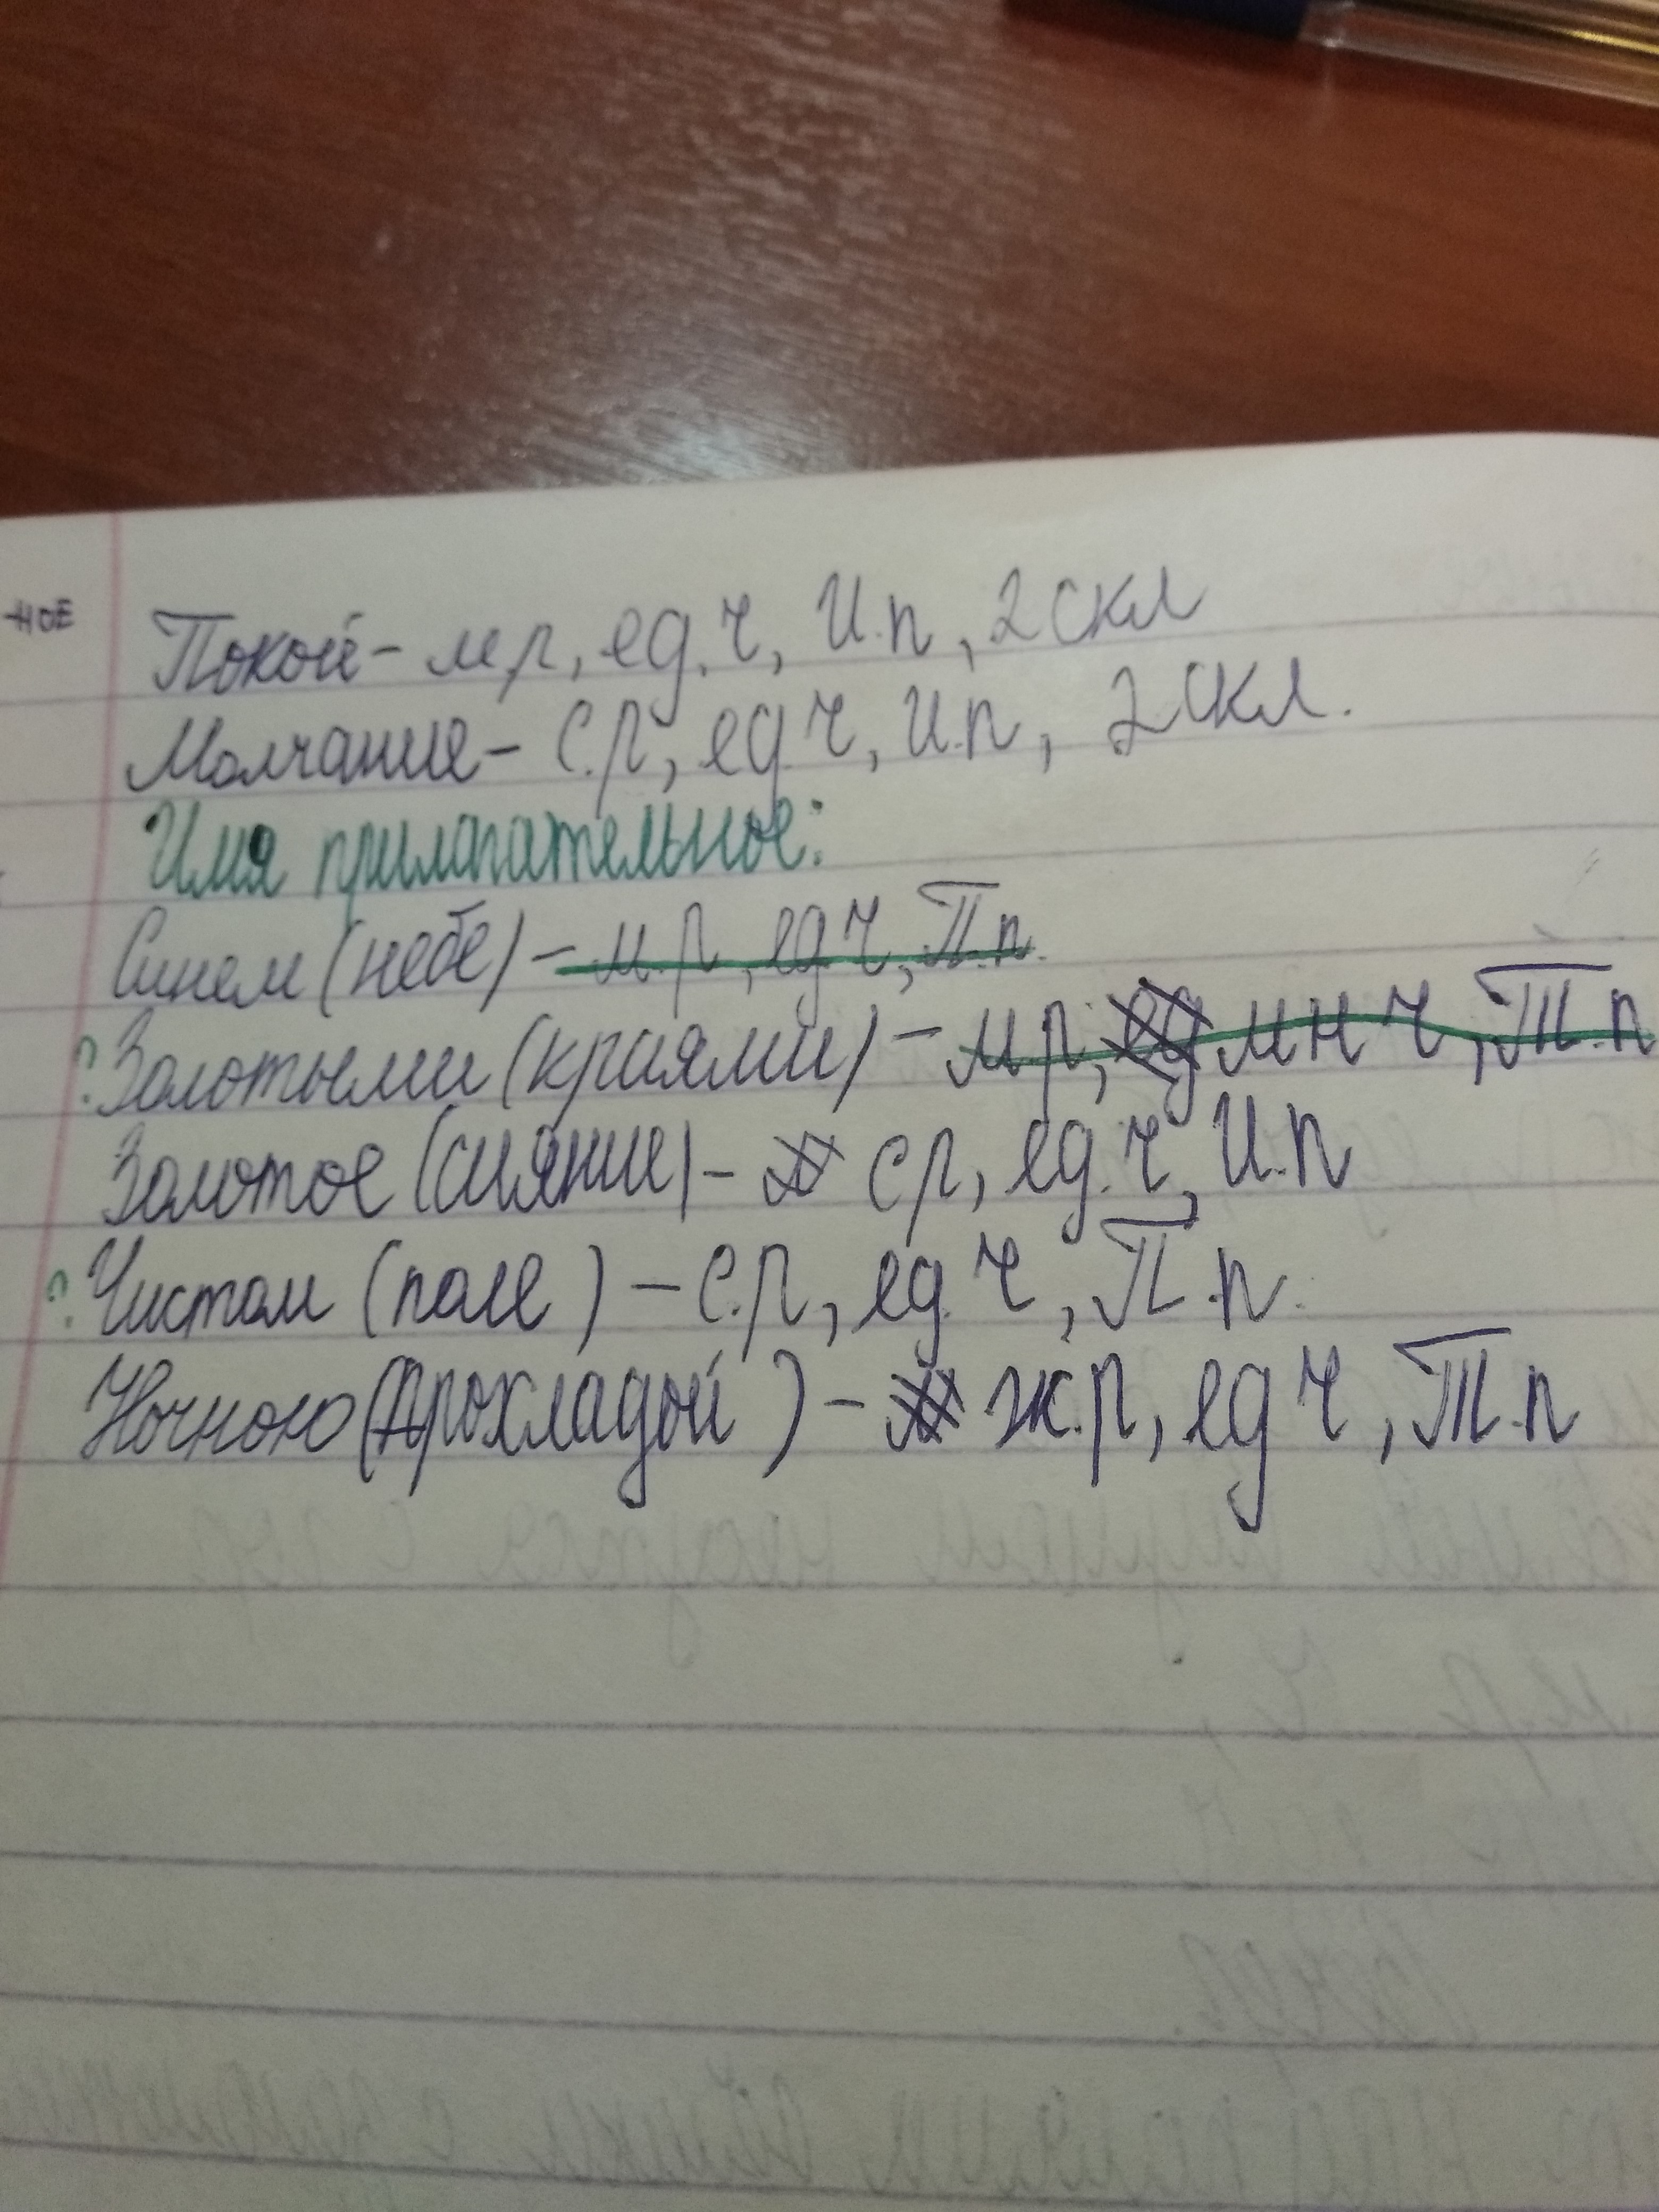 Покой - м р, ед. ч, И.п, 2 скл
Молчание - с.р, ед ч, и.п, 2 скл.
Имя прилагательное:
Синем (небе) - м.р, ед ч, П.п.
? Золотыми (краями) - м р, ед мн ч, Т.п
Золотое (сияние) - ср, ед. ч, И.п
? Чистом (поле) - с.р, ед. ч, П.п.
Ночною (прохладой) - ж.р, ед ч, Т.п